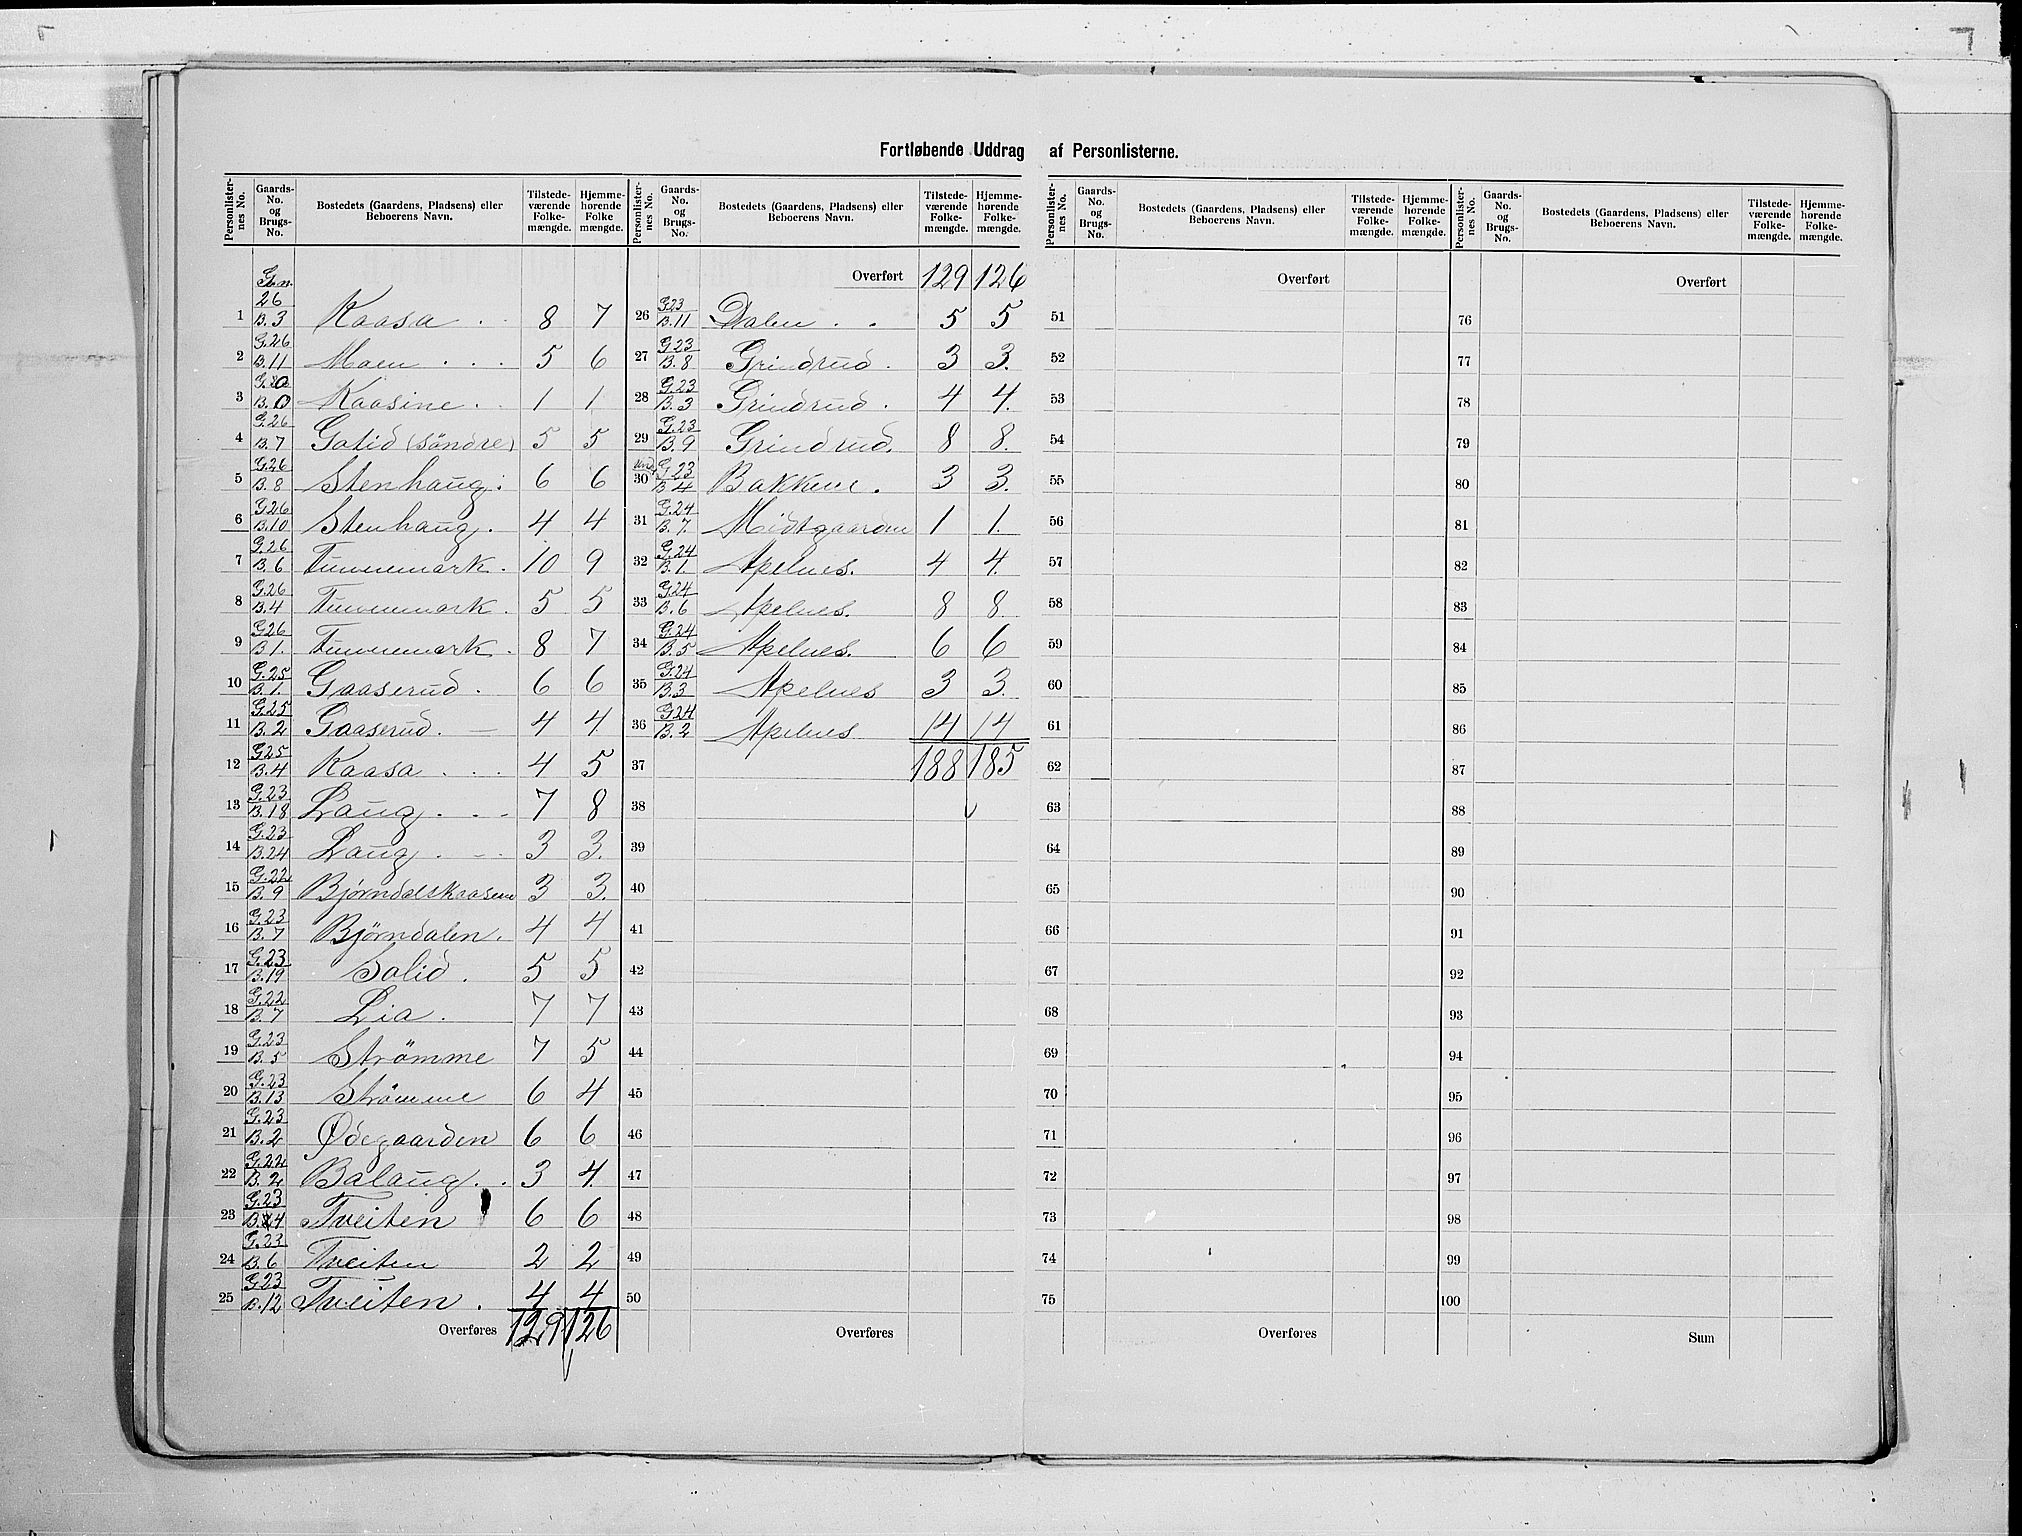 Fortløbende Uddrag af Personlisterne.
Personlister-nes No. | Gaards-No. og Brugs-No. | Bostedets (Gaardens, Pladsens) eller Beboerens Navn. | Tilstede-værende Folke-mængde. | Hjemme-hørende Folke mængde.
1 | Gn. 26 B. 3 | Kaasa | 8 | 7
2 | G. 26 B. 11 | Moen | 5 | 6
3 | G. 0 B. 0 | Kaasine | 1 | 1
4 | G. 26 B. 7 | Golid (söndre) | 5 | 5
5 | G. 26 B. 8 | Stenhaug | 6 | 6
6 | G. 26 B. 10 | Stenhaug. | 4 | 4
7 | G. 26 B. 6 | Funnemark. | 10 | 9
8 | G. 26 B. 4 | Funnemark. | 5 | 5
9 | G. 26 B. 1. | Funnemark. | 8 | 7
10 | G. 25 B. 1. | Gaaserud. | 6 | 6
11 | G. 25 B. 2 | Gaaserud. | 4 | 4
12 | G. 25 B. 4 | Kaasa | 4 | 5
13 | G. 23 B. 18 | Laug | 7 | 8
14 | G. 23 B. 24 | Laug | 3 | 3.
15 | G. 22 B. 9 | Bjørndalskaasene | 3 | 3.
16 | G. 23 B. 7 | Bjørndalen. | 4 | 4
17 | G. 23 B. 19 | Solid. | 5 | 5
18 | G. 22 B. 7 | Lia. | 7 | 7
19 | G. 23 B. 5 | Strömme | 7 | 5
20 | G. 23 B. 13 | Strömme | 6 | 4
21 | G. 23 B. 2 | Ødegaarden | 6 | 6
22 | G. 22 B. 2 | Balaug. | 3 | 4
23 | G. 23 B. 4 | Tveiten | 6 | 6
24 | G. 23 B. 6 | Tveiten | 2 | 2
25 | G. 23 B. 12 | Tveiten. | 4 | 4
Overføres 129 126
Personlister-nes No. | Gaards-No. og Brugs-No. | Bostedets (Gaardens, Pladsens) eller Beboerens Navn. | Tilstede-værende Folke-mængde. | Hjemme-hørende Folke-mængde.
Overført 129 126
26 | G. 23 B. 11 | Dalen | 5 | 5
27 | G. 23 B. 8 | Grindrud. | 3 | 3.
28 | G. 23 B. 3 | Grindrud. | 4 | 4.
29 | G. 23 B. 9 | Grindrud. | 8 | 8.
30 | Und. G. 23 B. 4 | Bakkene. | 3 | 3.
31 | G. 24 B. 7. | Midtgaarden | 1 | 1.
32 | G. 24 B. 1. | Apelnes. | 4 | 4.
33 | G. 24 B. 6 | Apelnes. | 8 | 8
34 | G. 24 B. 5 | Apelnes. | 6 | 6
35 | G. 24 B. 3 | Apelnes | 3 | 3.
36 | G. 24 B. 2 | Apelnes | 14 | 14
37 188 185
38
39
40
41
42
43
44
45
46
47
48
49
50
Overføres
Personlister-nes No. | Gaards-No. og Brugs-No. | Bostedets (Gaardens, Pladsens) eller Beboerens Navn. | Tilstede-værende Folke-mængde. | Hjemme-hørende Folke-mængde.
Overført
51
52
53
54
55
56
57
58
59
60
61
62
63
64
65
66
67
68
69
70
71
72
73
74
75
Overføres
Personlister-nes No. | Gaards-No. og Brugs-No. | Bostedets (Gaardens, Pladsens) eller Beboerens Navn. | Tilstede-værende Folke-mængde. | Hjemme-hørende Folke-mængde.
Overført
76
77
78
79
80
81
82
83
84
85
86
87
88
89
90
91
92
93
94
95
96
97
98
99
100
Sum